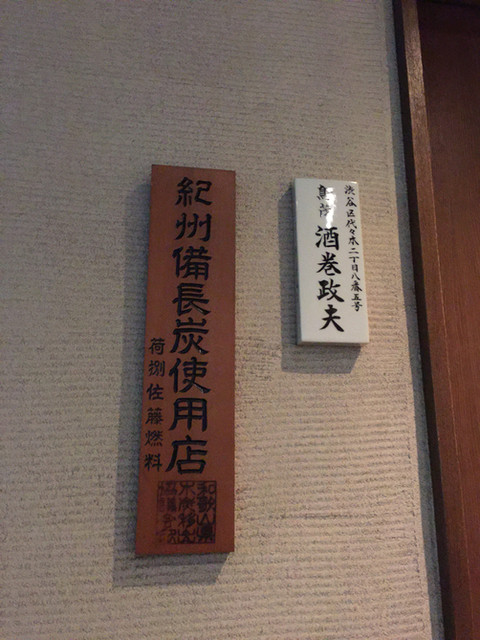 渋谷区代々木二丁目八番五号
酒巻政夫
紀州備長炭使用店
荷捌佐藤燃料